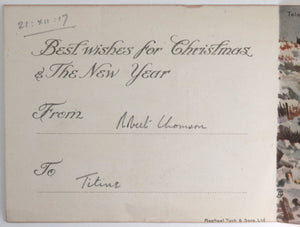 21:XII:17
Best wishes for Christmas
& The New Year
From
Robert Thomson
To
Titine
Raphael Tuck & Sons, Ltd.